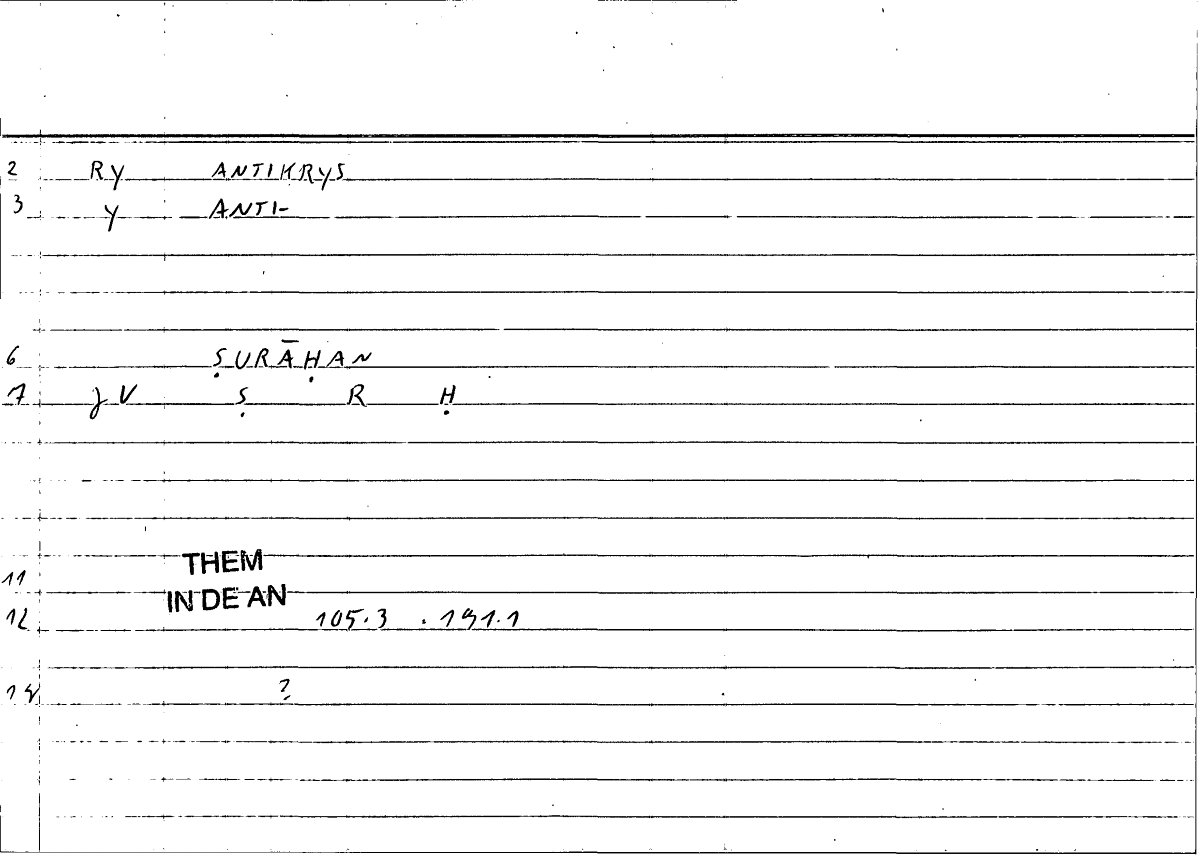 2 RY ANTIKRYS
3 Y ANTI-
6 ṢURĀḤAN
7 JV Ṣ R Ḥ
11 THEM
IN DE AN
12 105.3 . 191.1
14 ?